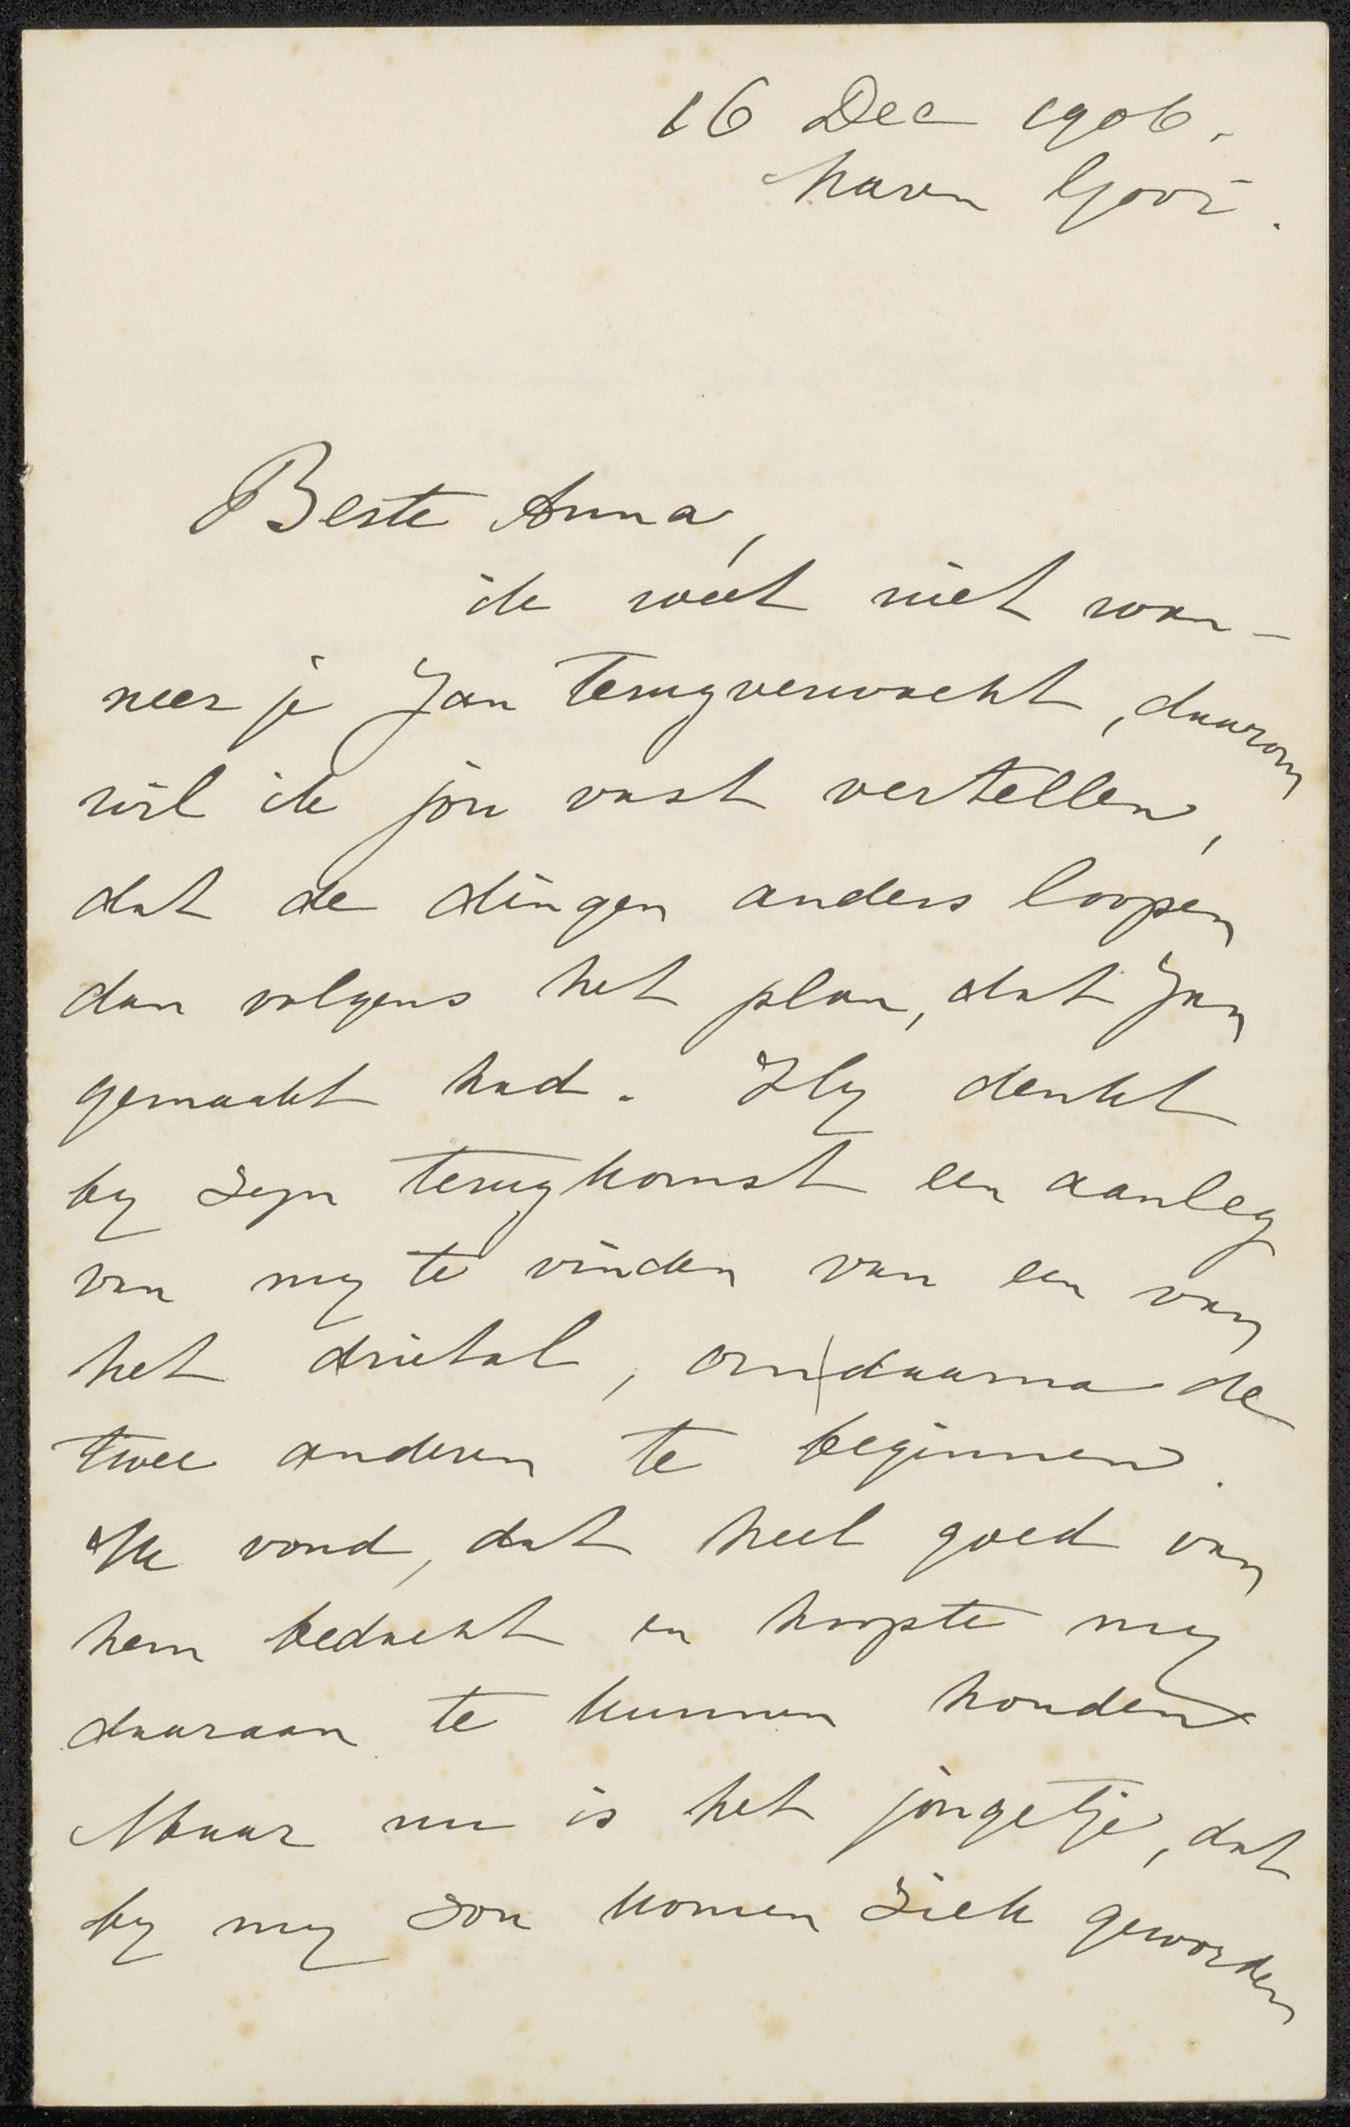 16 Dec 1906.
Laren Gooi.
Beste Anna,
ik weet niet wan-
neer je Jan terugverwacht, daarom
wil ik jou vast vertellen,
dat de dingen anders loopen
dan volgens het plan, dat Jan
gemaakt had. Hy denkt
by zyn terugkomst een aanleg
van my te vinden van een van
het drietal, om daarna de
twee anderen te beginnen.
Ik vond, dat heel goed van
hem bedacht en hoopte my
daaraan te kunnen houden
Maar nu is het jongetje, dat
by my zou komen ziek geworden